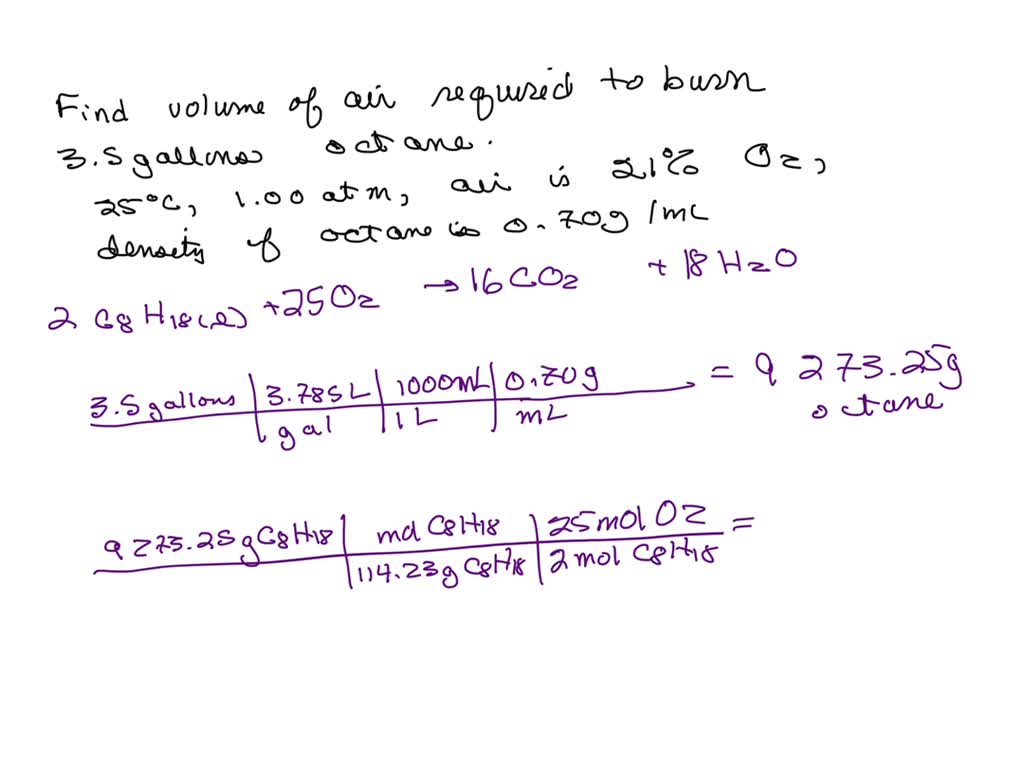 Find volume of air required to burn
3.5 gallons octane.
25°C, 1.00 atm, air is 21% O2,
density of octane is 0.70g/mL
2 C8H18(l) + 25O2 → 16CO2 + 18H2O
3.5 gallons | 3.785L | 1000mL | 0.70g = 9273.25g
gal | 1L | mL octane
9273.25g C8H18 | mol C8H18 | 25mol O2 =
114.23g C8H18 | 2mol C8H18